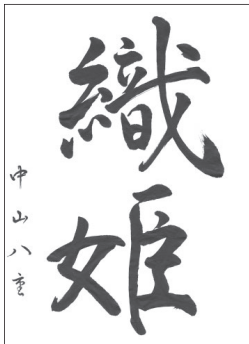 織姫
中山八重